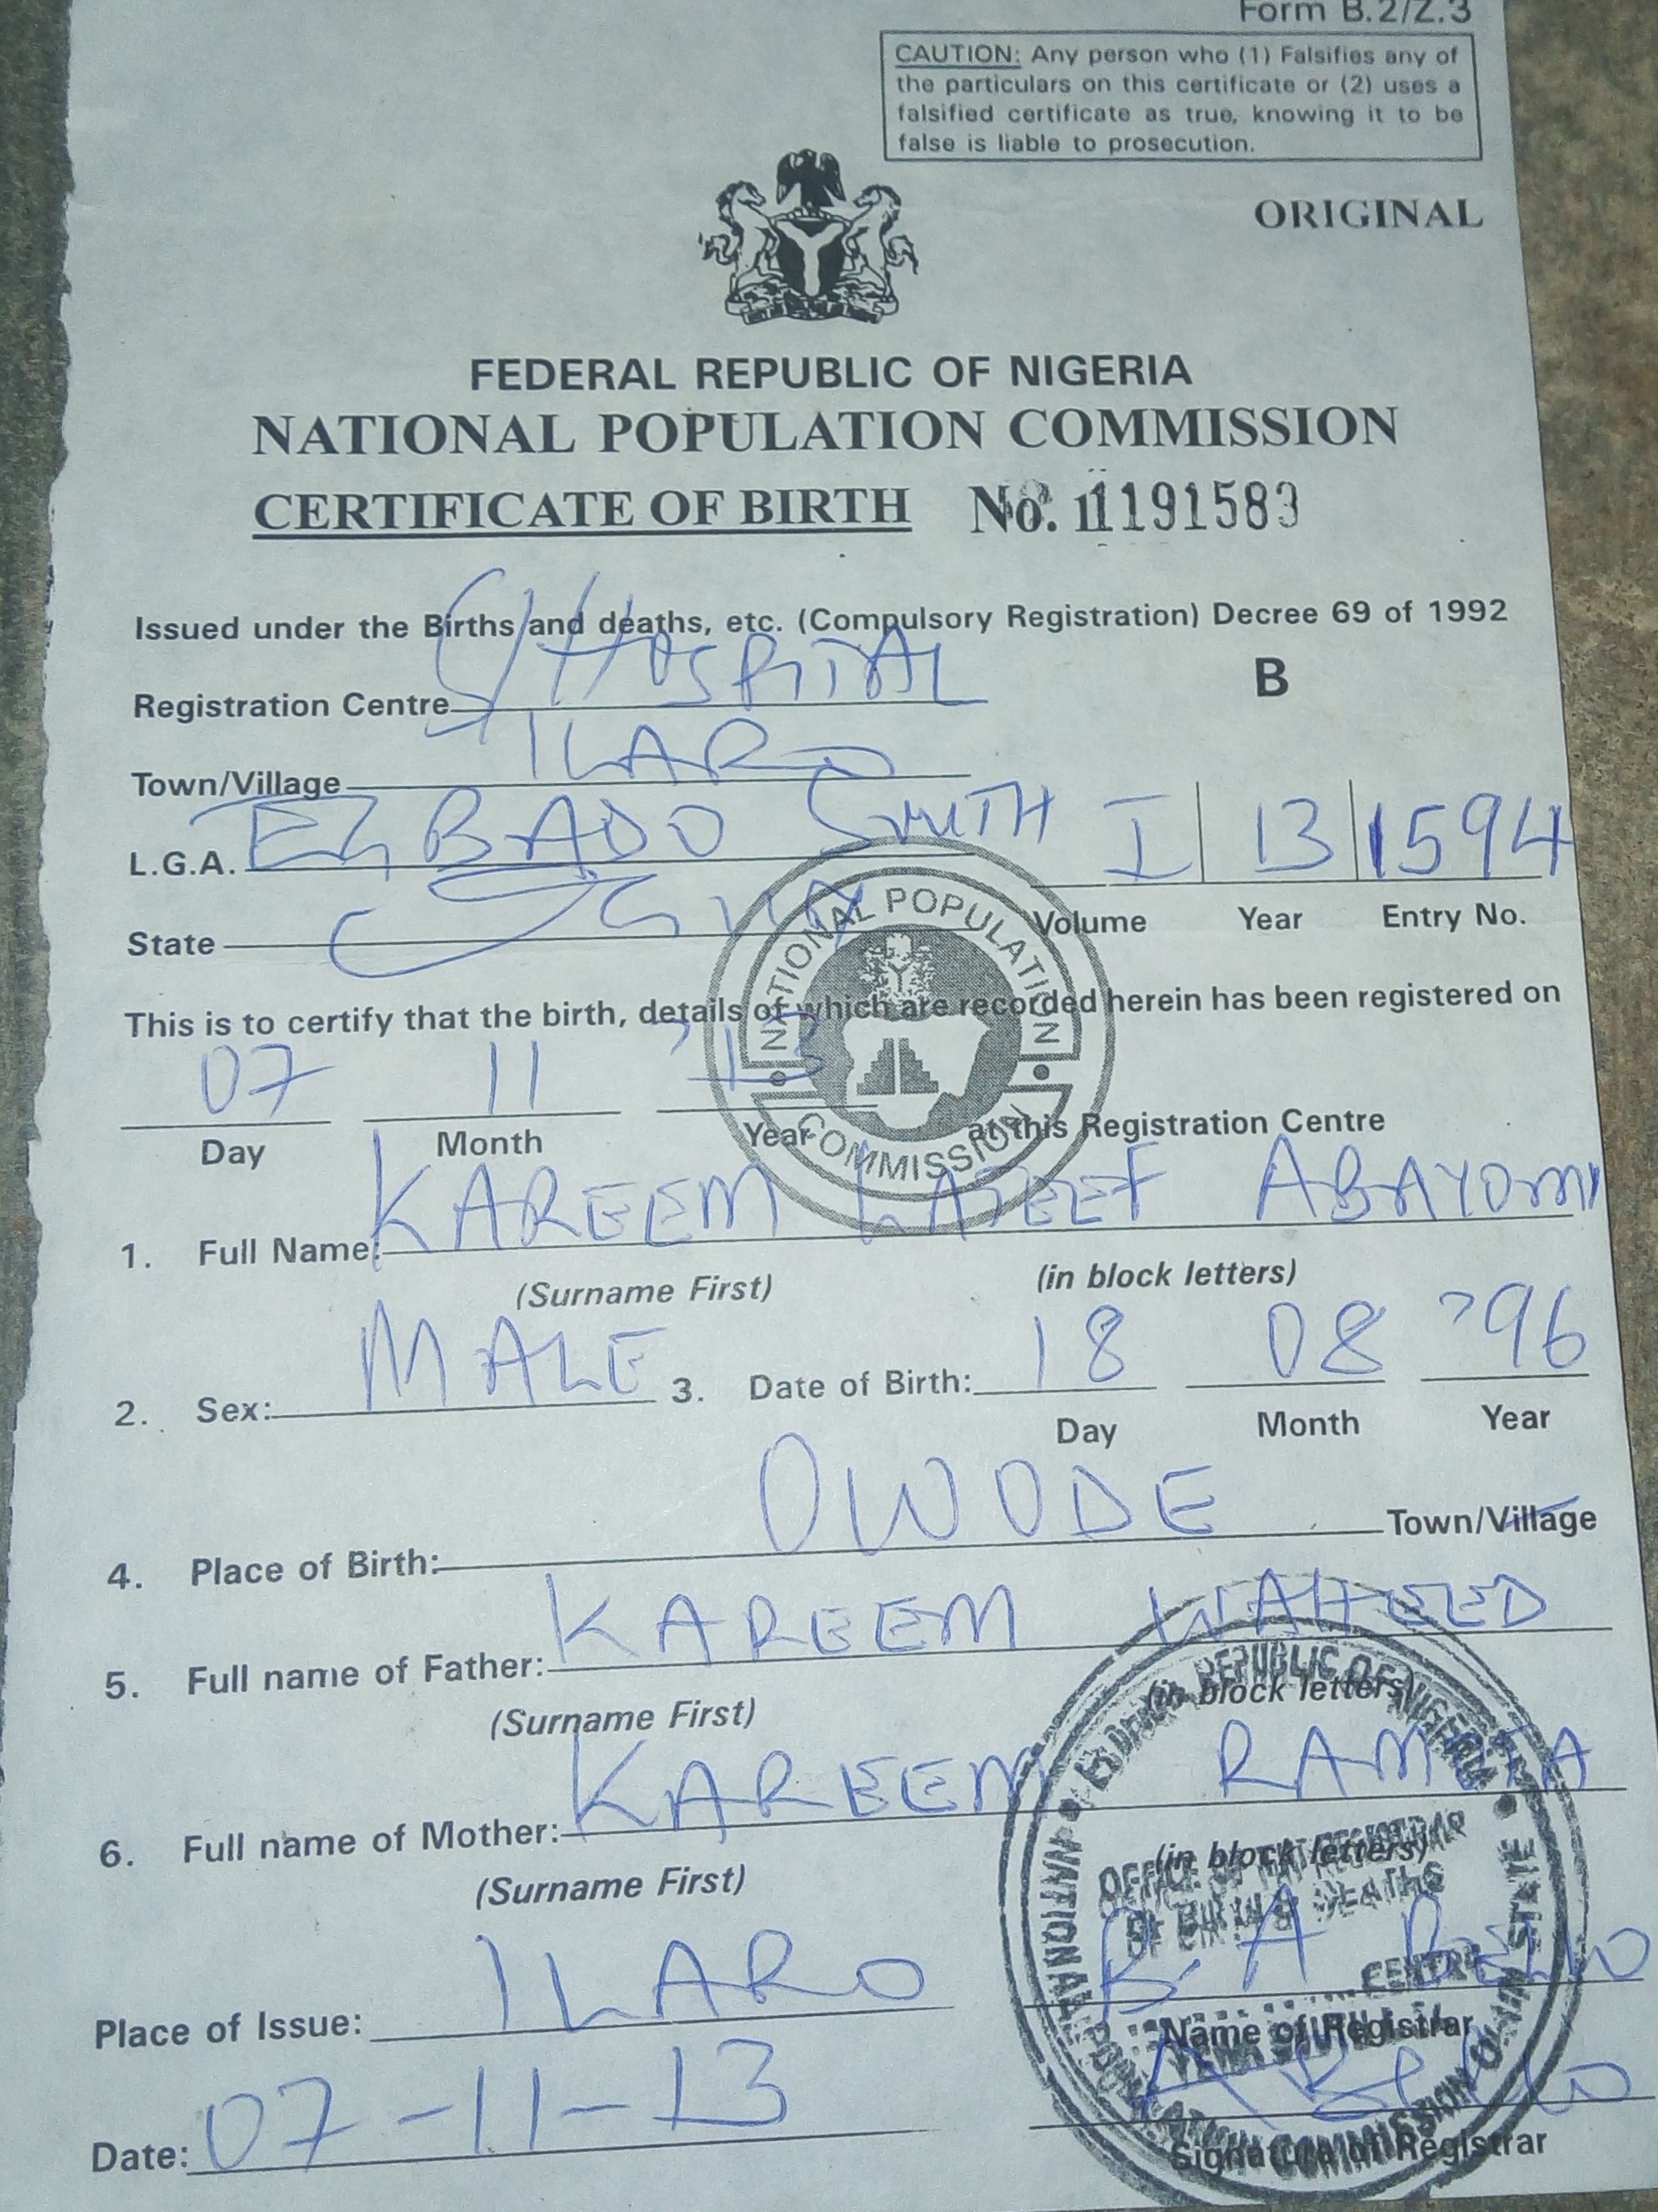 Form B.2/Z.3
CAUTION: Any person who (1) Falsifies any of
the particulars on this certificate or (2) uses a
falsified certificate as true, knowing it to be
false is liable to prosecution.
ORIGINAL
FEDERAL REPUBLIC OF NIGERIA
NATIONAL POPULATION COMMISSION
CERTIFICATE OF BIRTH No. 11191583
Issued under the Births and deaths, etc. (Compulsory Registration) Decree 69 of 1992
Registration Centre G/HOSPITAL B
Town/Village ILARO
L.G.A. EGBADO SOUTH I 13 1594
State OGUN Volume Year Entry No.
NATIONAL POPULATION COMMISSION
This is to certify that the birth, details of which are recorded herein has been registered on
07 11 '13
Day Month Year at this Registration Centre
1. Full Name: KAREEM LATEEF ABAYOMI
(Surname First) (in block letters)
2. Sex: MALE 3. Date of Birth: 18 08 '96
Day Month Year
4. Place of Birth: OWODE Town/Village
5. Full name of Father: KAREEM WAHEED
(Surname First) (in block letters)
6. Full name of Mother: KAREEM
(Surname First) (in block letters)
REPUBLIC OF NIGERIA
Place of Issue: ILARO B. A BELLO
Name of Registrar
Date: 07-11-13 ABello
Signature of Registrar